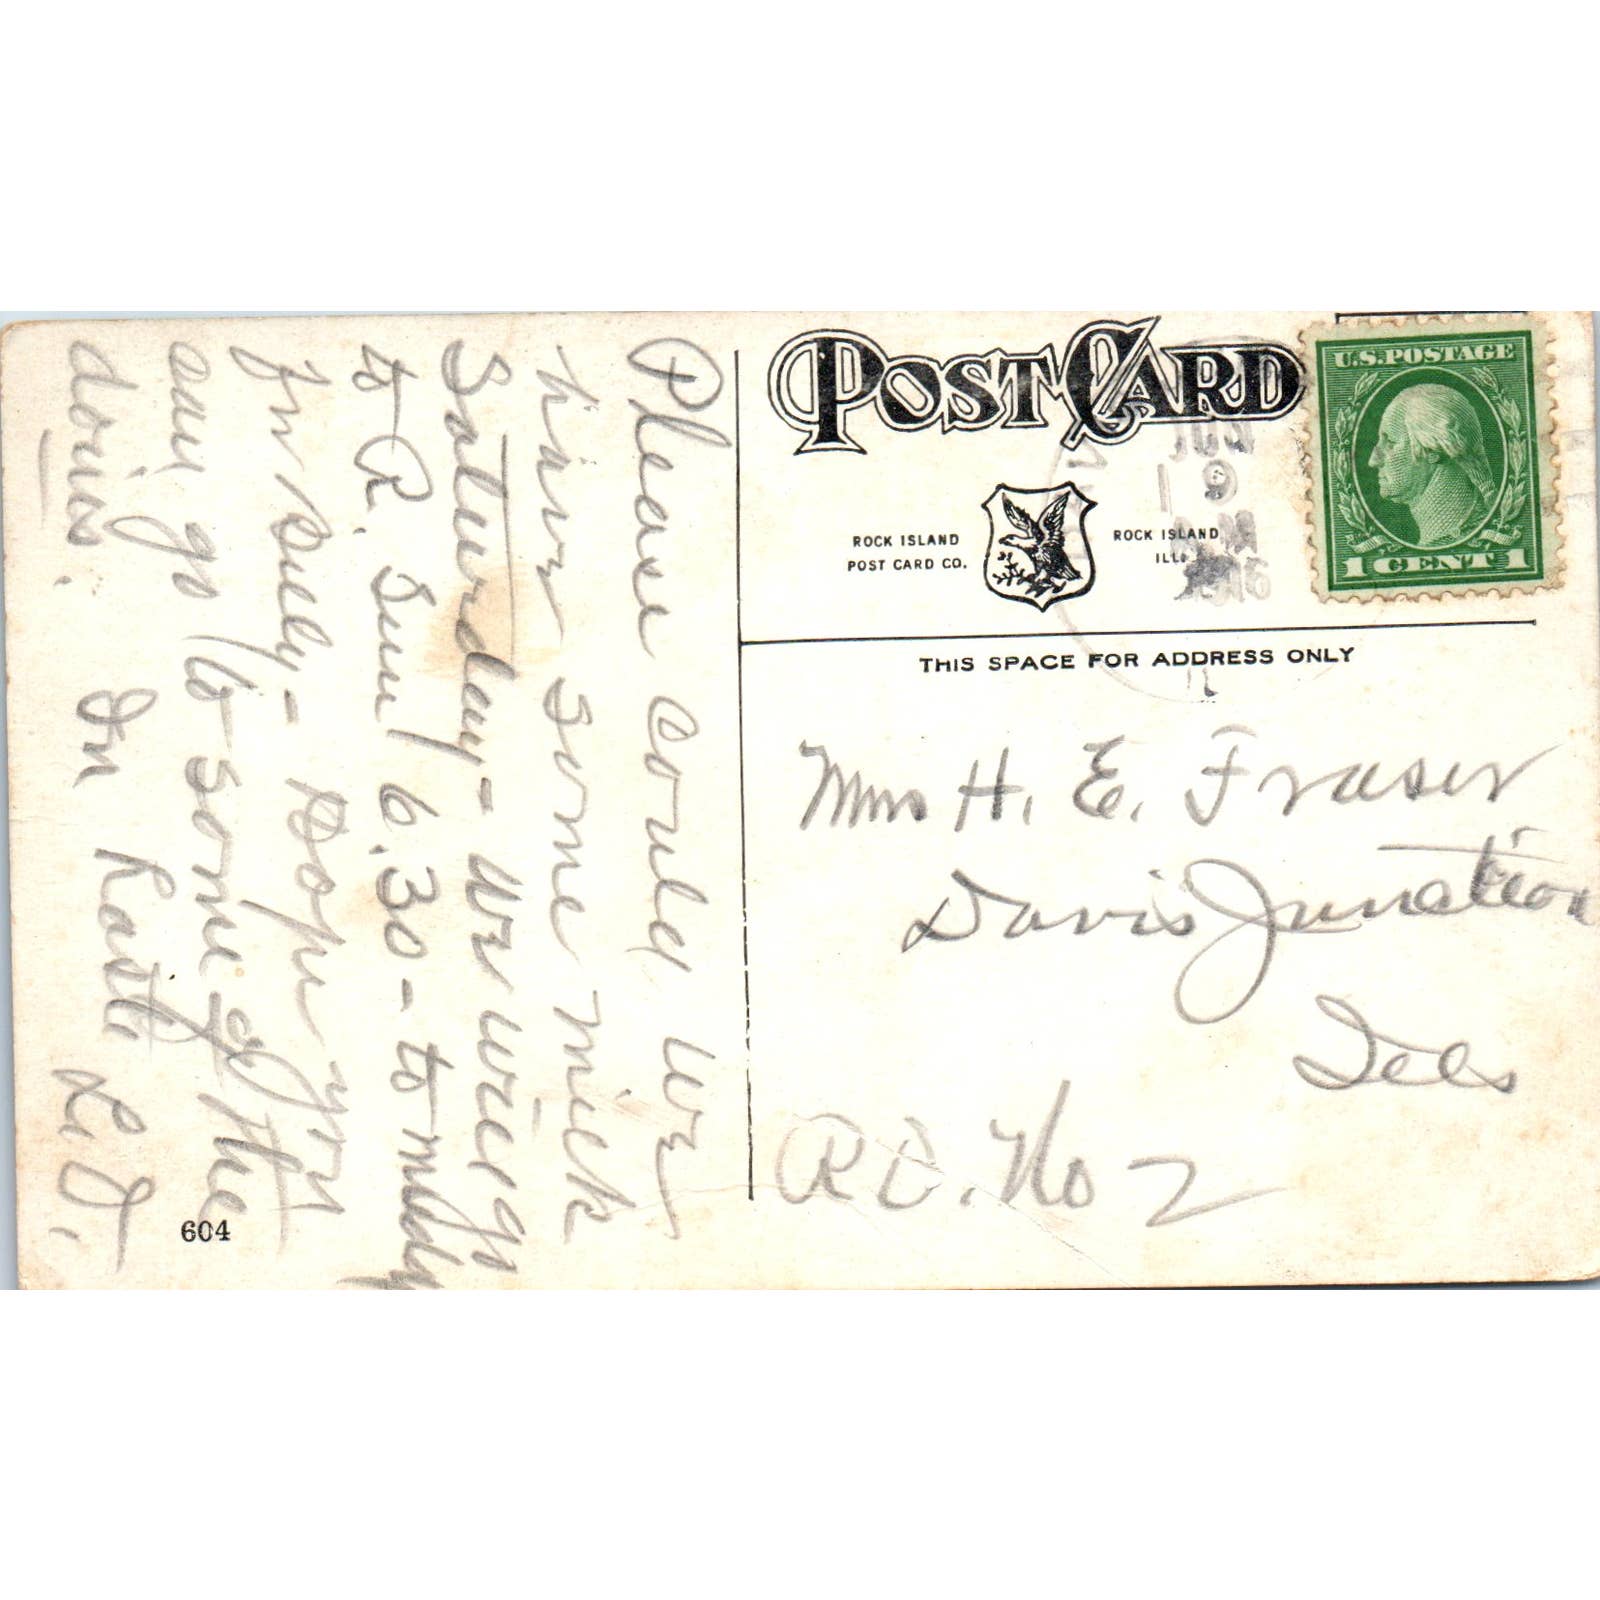 POST CARD
U.S. POSTAGE
1 CENT 1
JUN
9
1916
ROCK ISLAND
POST CARD CO.
ROCK ISLAND,
ILL.
THIS SPACE FOR ADDRESS ONLY
Mrs H. E. Fraser
Davis Junction
Ills
R D. No 2
Please could we
have some milk
Saturday - We will go
to R. 6.30 - to
- Hope you
can go to some of the
doins. In Haste L. D.
604